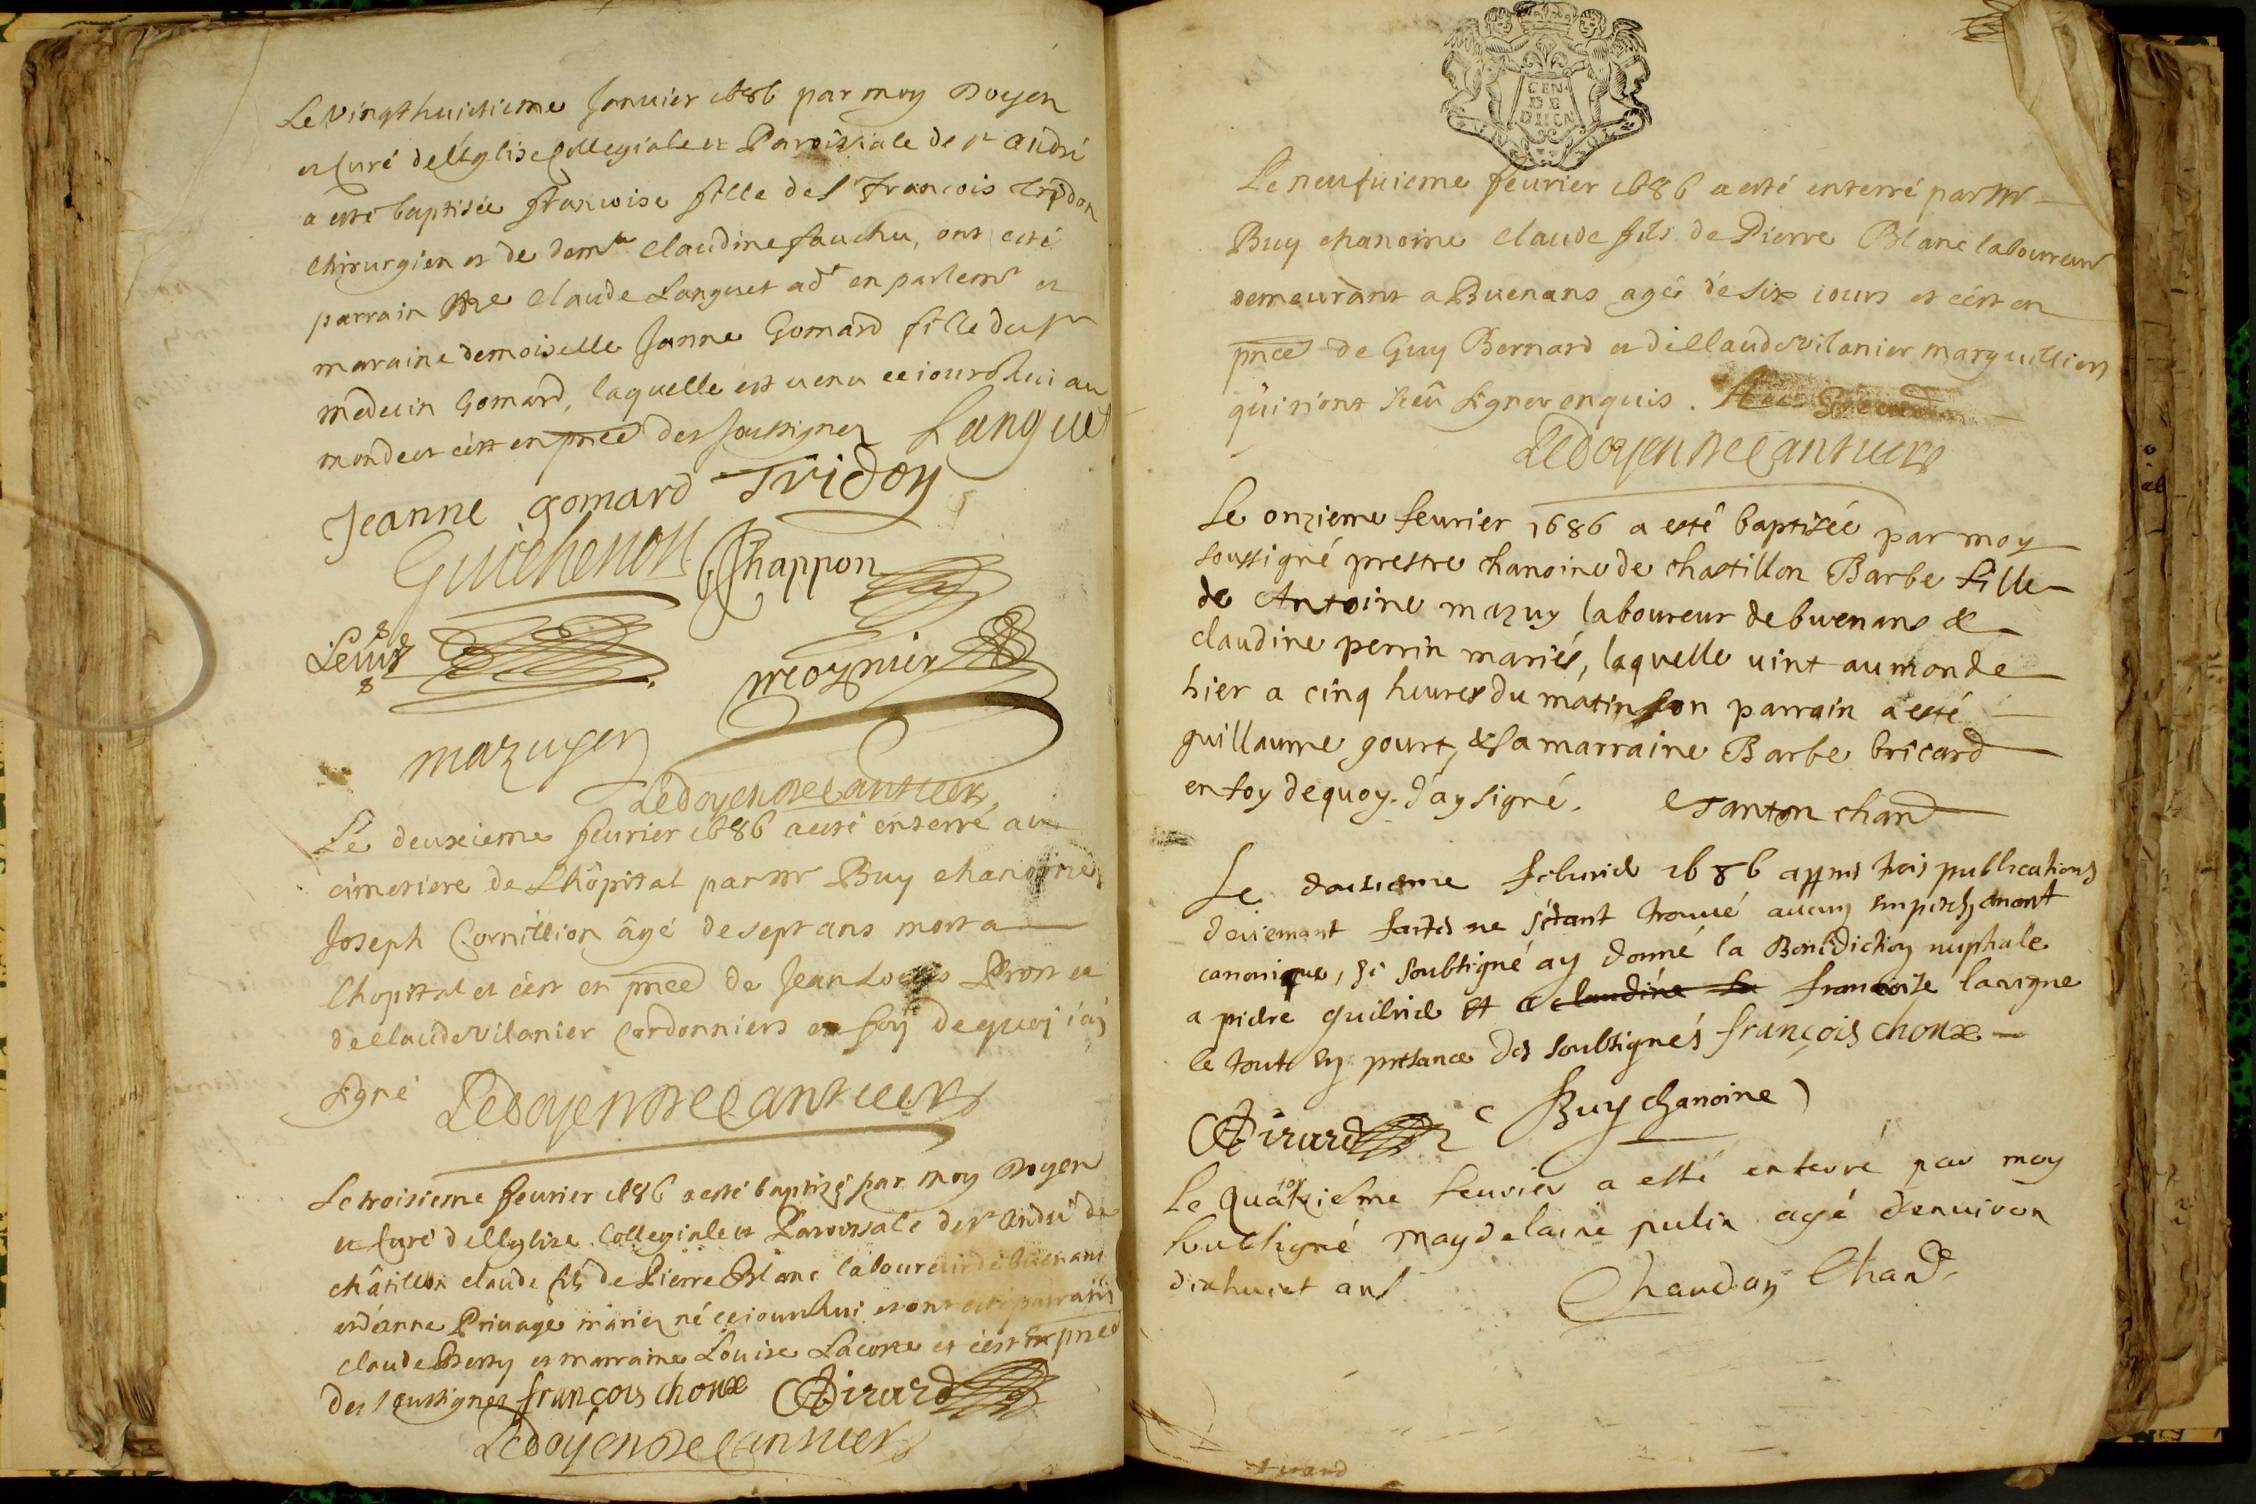 Le vingt huictieme Januier 1686 par moy Doyen
et Curé de l'Eglise Collegiale et Paroissiale de st André
a esté baptisée francoise fille de sr Francois Tridon
chirurgien et de demlle Claudine fauchu, ont esté
parrain Me Claude Languet adt en parlemt et
maraine demoiselle Janne Gomard fille du sr
medecin Gomard, laquelle est venu ce iourdhui au
monde et c'est en pnce des soussignez Languet
Jeanne gomard Tridon
Guichenon Chappon
Leuis moznier
mazuyer
Ledoyen De Cantuern
Le deuxieme feurier 1686 a esté enterré au
cimetiere de Lhôpital par Mr Buy chanoine
Joseph Cornillion âgé de sept ans mort a
lhopital et c'est en pnce de Jean Louis Pron et
de Claude Vilanier Cordonniers en foy de quoy i'ay
signé Ledoyen De Cantuern
Le troisieme feurier 1686 a esté baptizé par moy Doyen
et Curé de l'Eglise Collegiale et Paroissiale de st André de
châtillon claude fils de Pierre Blanc laboureur de buenans
et d'anne Priuage mariez né ce iourdhui et ont esté parrain
claude et marraine Louise Lacorte et c'est en pnce
des soussignez françois choux Girard
Ledoyen De Cantuern
CEN
DE
DHEN
Le neufuieme feurier 1686 a esté enterré par Mr
Buy chanoine claude fils de Pierre Blanc laboureur
demeurant a Buenans agé de six iours et c'est en
pnce de Guy Bernard et de Claude Vilanier marguilliers
qui n'ont sceû signer enquis.
Ledoyen De Cantuern
Le onzieme feurier 1686 a esté baptisée par moy
soussigné prestre chanoine de chastillon Barbe fille
de Antoine mazuy laboureur de buenans &
claudine perrin mariés, laquelle uint au monde
hier a cinq heures du matin son parrain a esté
guillaume gourt, & sa marraine Barbe bricard
en foy de quoy j'ay signé. Tanton chan
Le douzieme feburier 1686 appres trois publications
deuement faites ne s'étant trouué aucun empeschement
canonique, je soubsigné ay donné la Benediction nuptiale
a pierre quilriel et a claudine la francoise lauigne
le tout en presance des soubsignés françois choux
Girard Buy chanoine
Le quatorzieme feurier a esté enterré par moy
soussigné magdelaine pulin agé denuiron
dixhuict ans Chaudon Chane